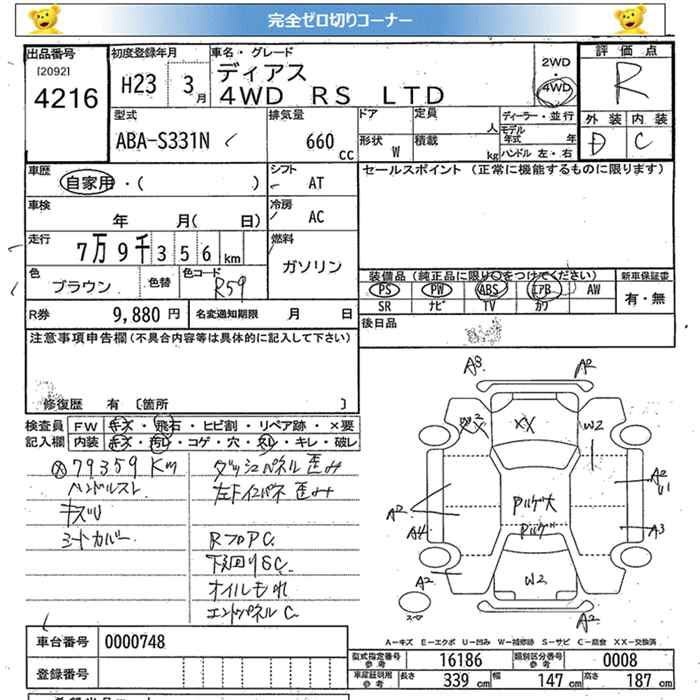 完全ゼロ切りコーナー
出品番号 初度登録年月 車名・グレード 評価点
[2092] H23 3月 ディアス 2WD R
4216 4WD RS LTD 4WD
型式 排気量 ドア 定員 人 ディーラー・並行 外装 内装
ABA-S331N 660 cc 形状 W 積載 kg モデル年式 年 D C
ハンドル 左・右
車歴 シフト セールスポイント (正常に機能するものに限ります)
自家用・( ) AT
車検 冷房
年 月( 日) AC
走行 燃料
7万9千356km ガソリン
色 色替 色コード 装備品 (純正品に限り○をつけてください) 新車保証書
ブラウン R59 PS PW ABS エアB AW 有・無
SR ナビ TV カワ
R券 9,880円 名変通知期限 月 日 後日品
注意事項申告欄(不具合内容等は具体的に記入して下さい)
修復歴 有 〔箇所 〕
検査員 FW キズ・飛石・ヒビ割・リペア跡・×要
記入欄 内装 キズ・汚レ・コゲ・穴・スレ・キレ・破レ
79359Km ダッシュパネル歪み
ハンドルスレ 左Fインパネ歪み
キズU
シートカバー RフロアC
下回りSC
オイルもれ
エンドパネルC
A3 A2
W3 XX W2
A2 A4 Pルゲ大 A2 U1
Pルゲ A3
A2 W2
スペア A2
A-キズ E-エクボ U-凹み W-補修跡 S-サビ C-腐食 XX-交換済
車台番号 0000748
型式指定番号 参考 16186 類別区分番号 参考 0008
登録番号 車庫証明用 参考 長さ 339cm 幅 147cm 高さ 187cm